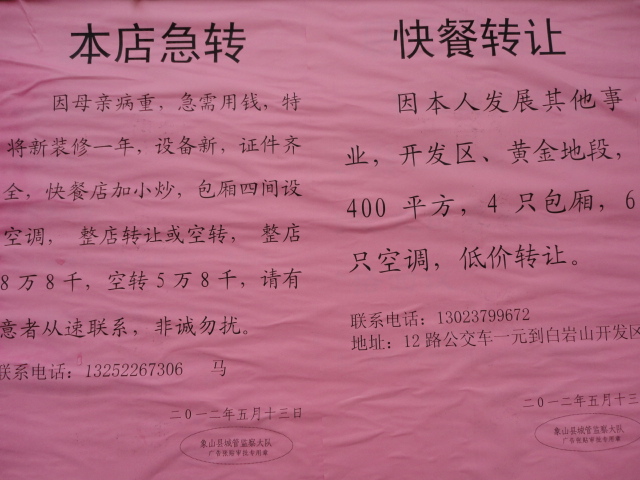 本店急转
因母亲病重，急需用钱，特
将新装修一年，设备新，证件齐
全，快餐店加小炒，包厢四间设
空调， 整店转让或空转， 整店
8万8千，空转5万8千，请有
意者从速联系，非诚勿扰。
联系电话：13252267306 马
二〇一二年五月十三日
象山县城管监察大队
广告张贴审批专用章
快餐转让
因本人发展其他事
业，开发区、黄金地段，
400 平方，4 只包厢，6
只空调，低价转让。
联系电话：13023799672
地址：12 路公交车一元到白岩山开发区
二〇一二年五月十三
象山县城管监察大队
广告张贴审批专用章